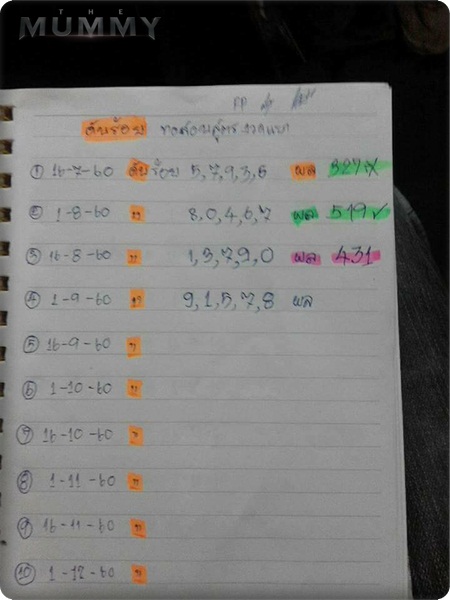 THE
MUMMY
ดับร้อย ทดสอบสูตร งวดแรก
① 16-7-60 ดับร้อย 5,7,9,3,6 ผล 327 x
② 1-8-60 " 8,0,4,6,7 ผล 519 ✓
③ 16-8-60 " 1,3,7,9,0 ผล 431
④ 1-9-60 " 9,1,5,7,8 ผล
⑤ 16-9-60 "
⑥ 1-10-60 "
⑦ 16-10-60 "
⑧ 1-11-60 "
⑨ 16-11-60 "
⑩ 1-12-60 "